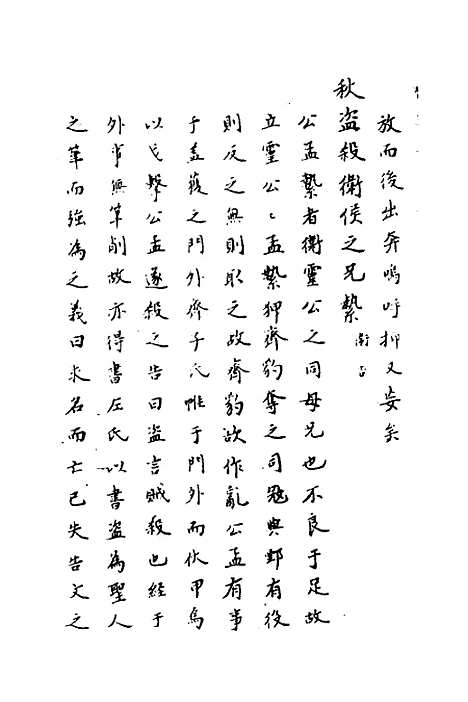 放而後出奔嗚呼抑又妄矣
秋盗殺衛侯之兄縶 衛告
公孟縶者衛靈公之同母兄也不良于足故
立靈公〻孟縶狎齊豹奪之司寇與鄄有役
則反之無則取之故齊豹欲作亂公孟有事
于蓋獲之門外齊子氏帷于門外而伏甲焉
以戈擊公孟遂殺之告曰盗言賊殺也經于
外事無筆削故亦得書左氏以書盗為聖人
之筆而强為之義曰求名而亡已失告文之